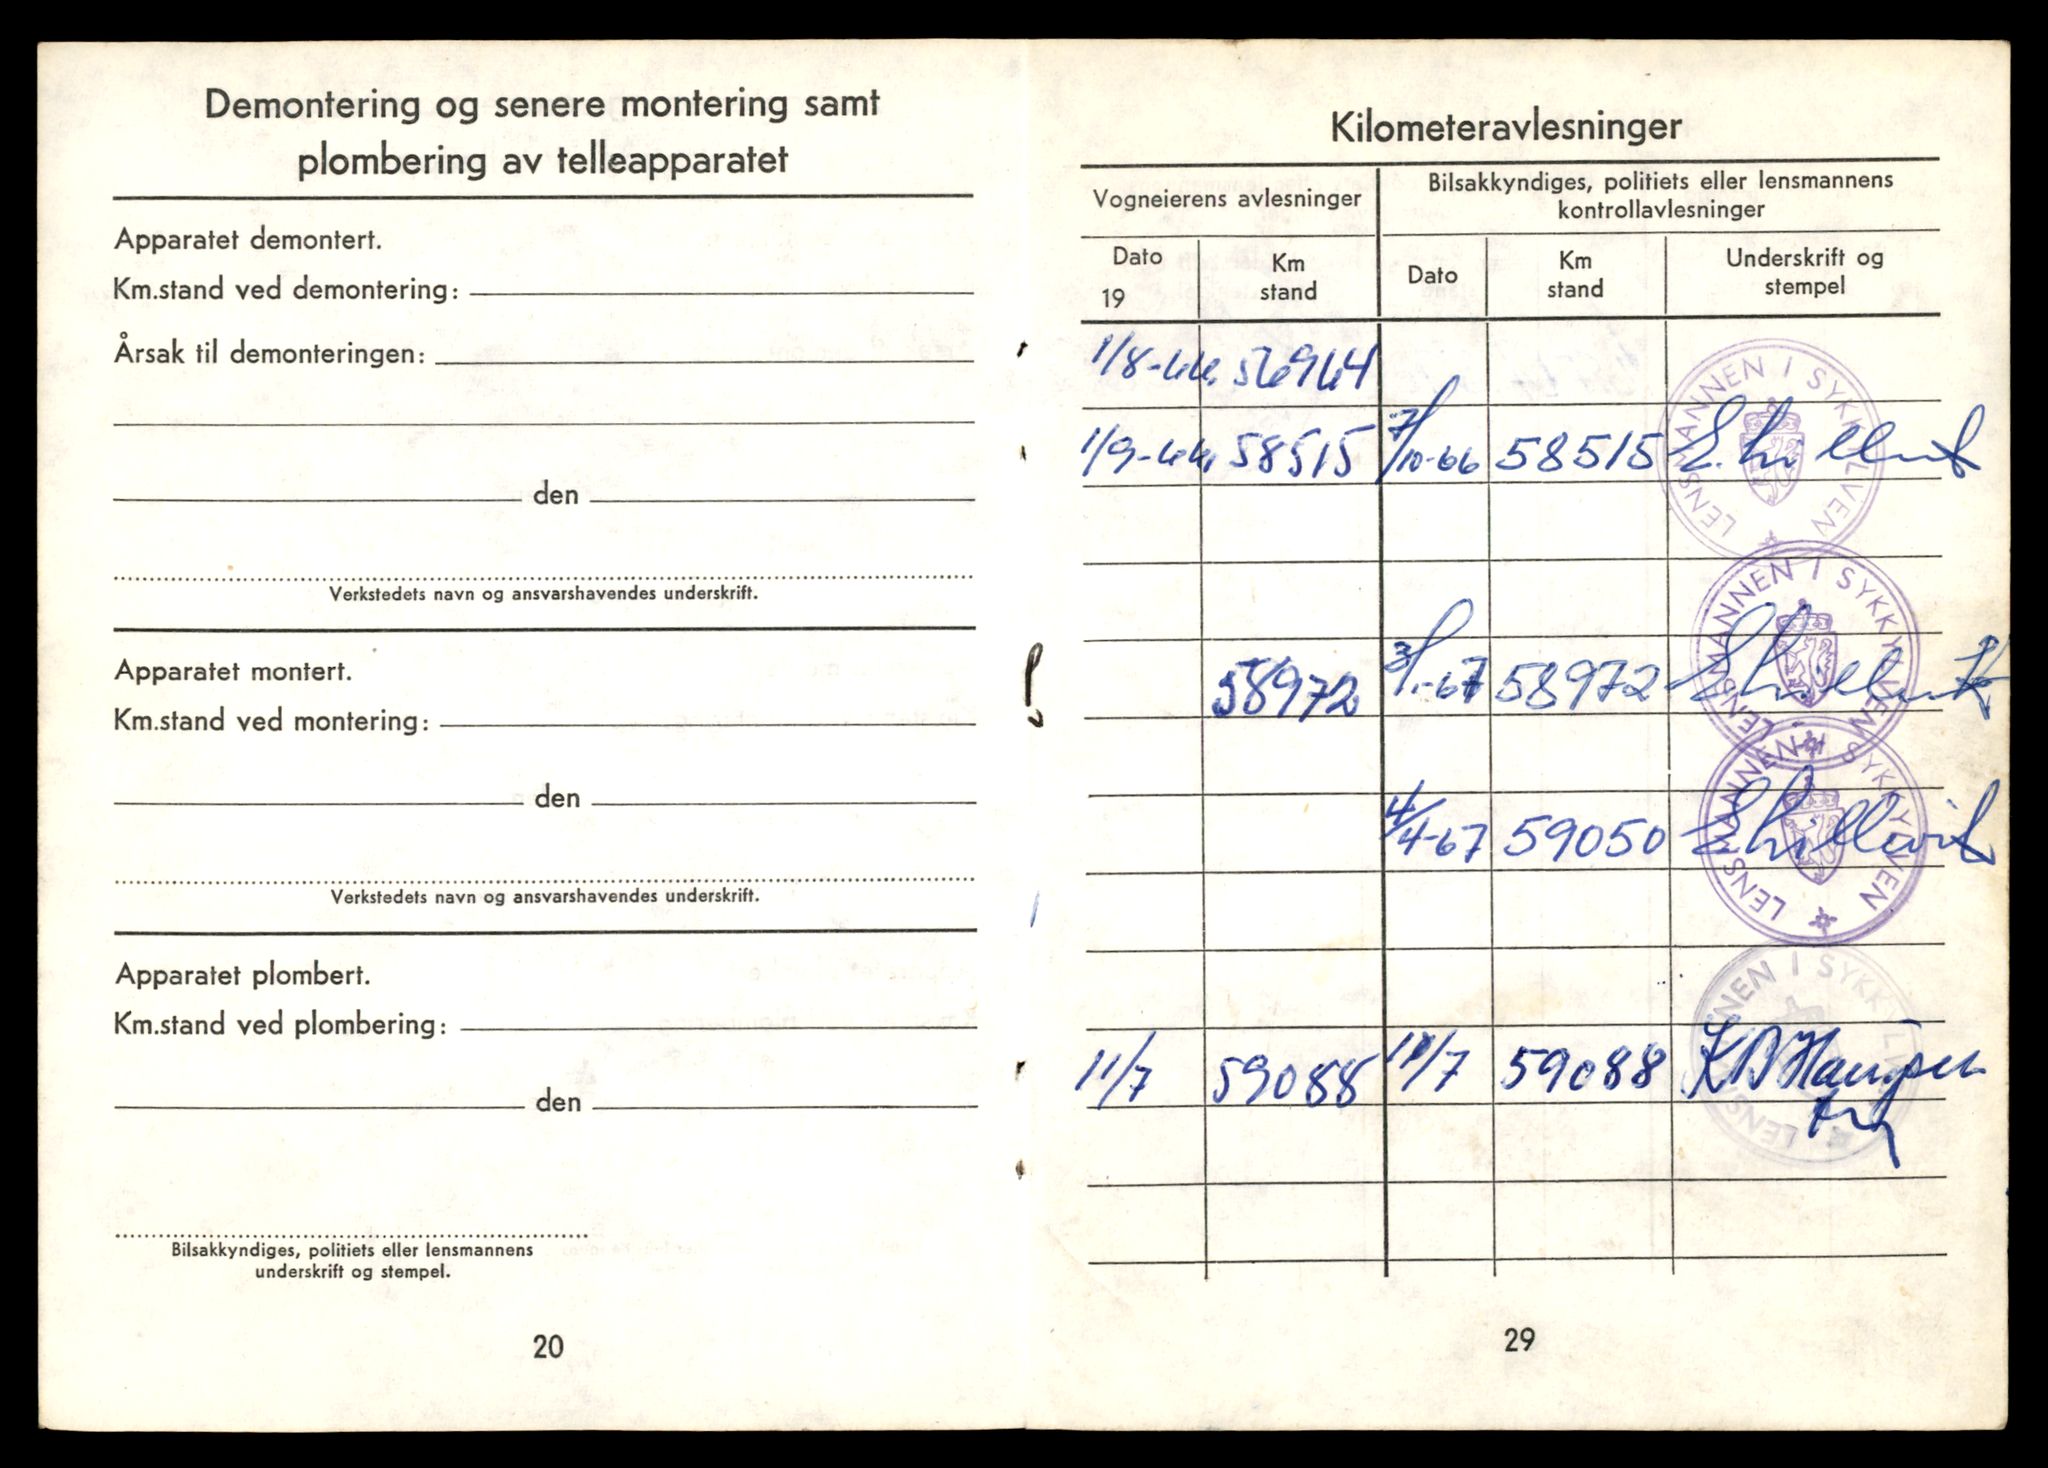 Demontering og senere montering samt
plombering av telleapparatet
Apparatet demontert.
Km.stand ved demontering:
Årsak til demonteringen:
den
Verkstedets navn og ansvarshavendes underskrift.
Apparatet montert.
Km.stand ved montering:
den
Verkstedets navn og ansvarshavendes underskrift.
Apparatet plombert.
Km.stand ved plombering:
den
Bilsakkyndiges, politiets eller lensmannens
underskrift og stempel.
20
Kilometeravlesninger
Vogneierens avlesninger
Bilsakkyndiges, politiets eller lensmannens
kontrollavlesninger
Dato
19
Km
stand
Dato
Km
stand
Underskrift og
stempel
1/8-66. 56964
1/9-66. 58515 7/10-66 58515
LENSMANNEN I SYKKYLVEN
58972 3/1-67 58972
LENSMANNEN I SYKKYLVEN
4/4-67 59050
LENSMANNEN I SYKKYLVEN
11/7 59088 11/7 59088
LENSMANNEN I SYKKYLVEN
29